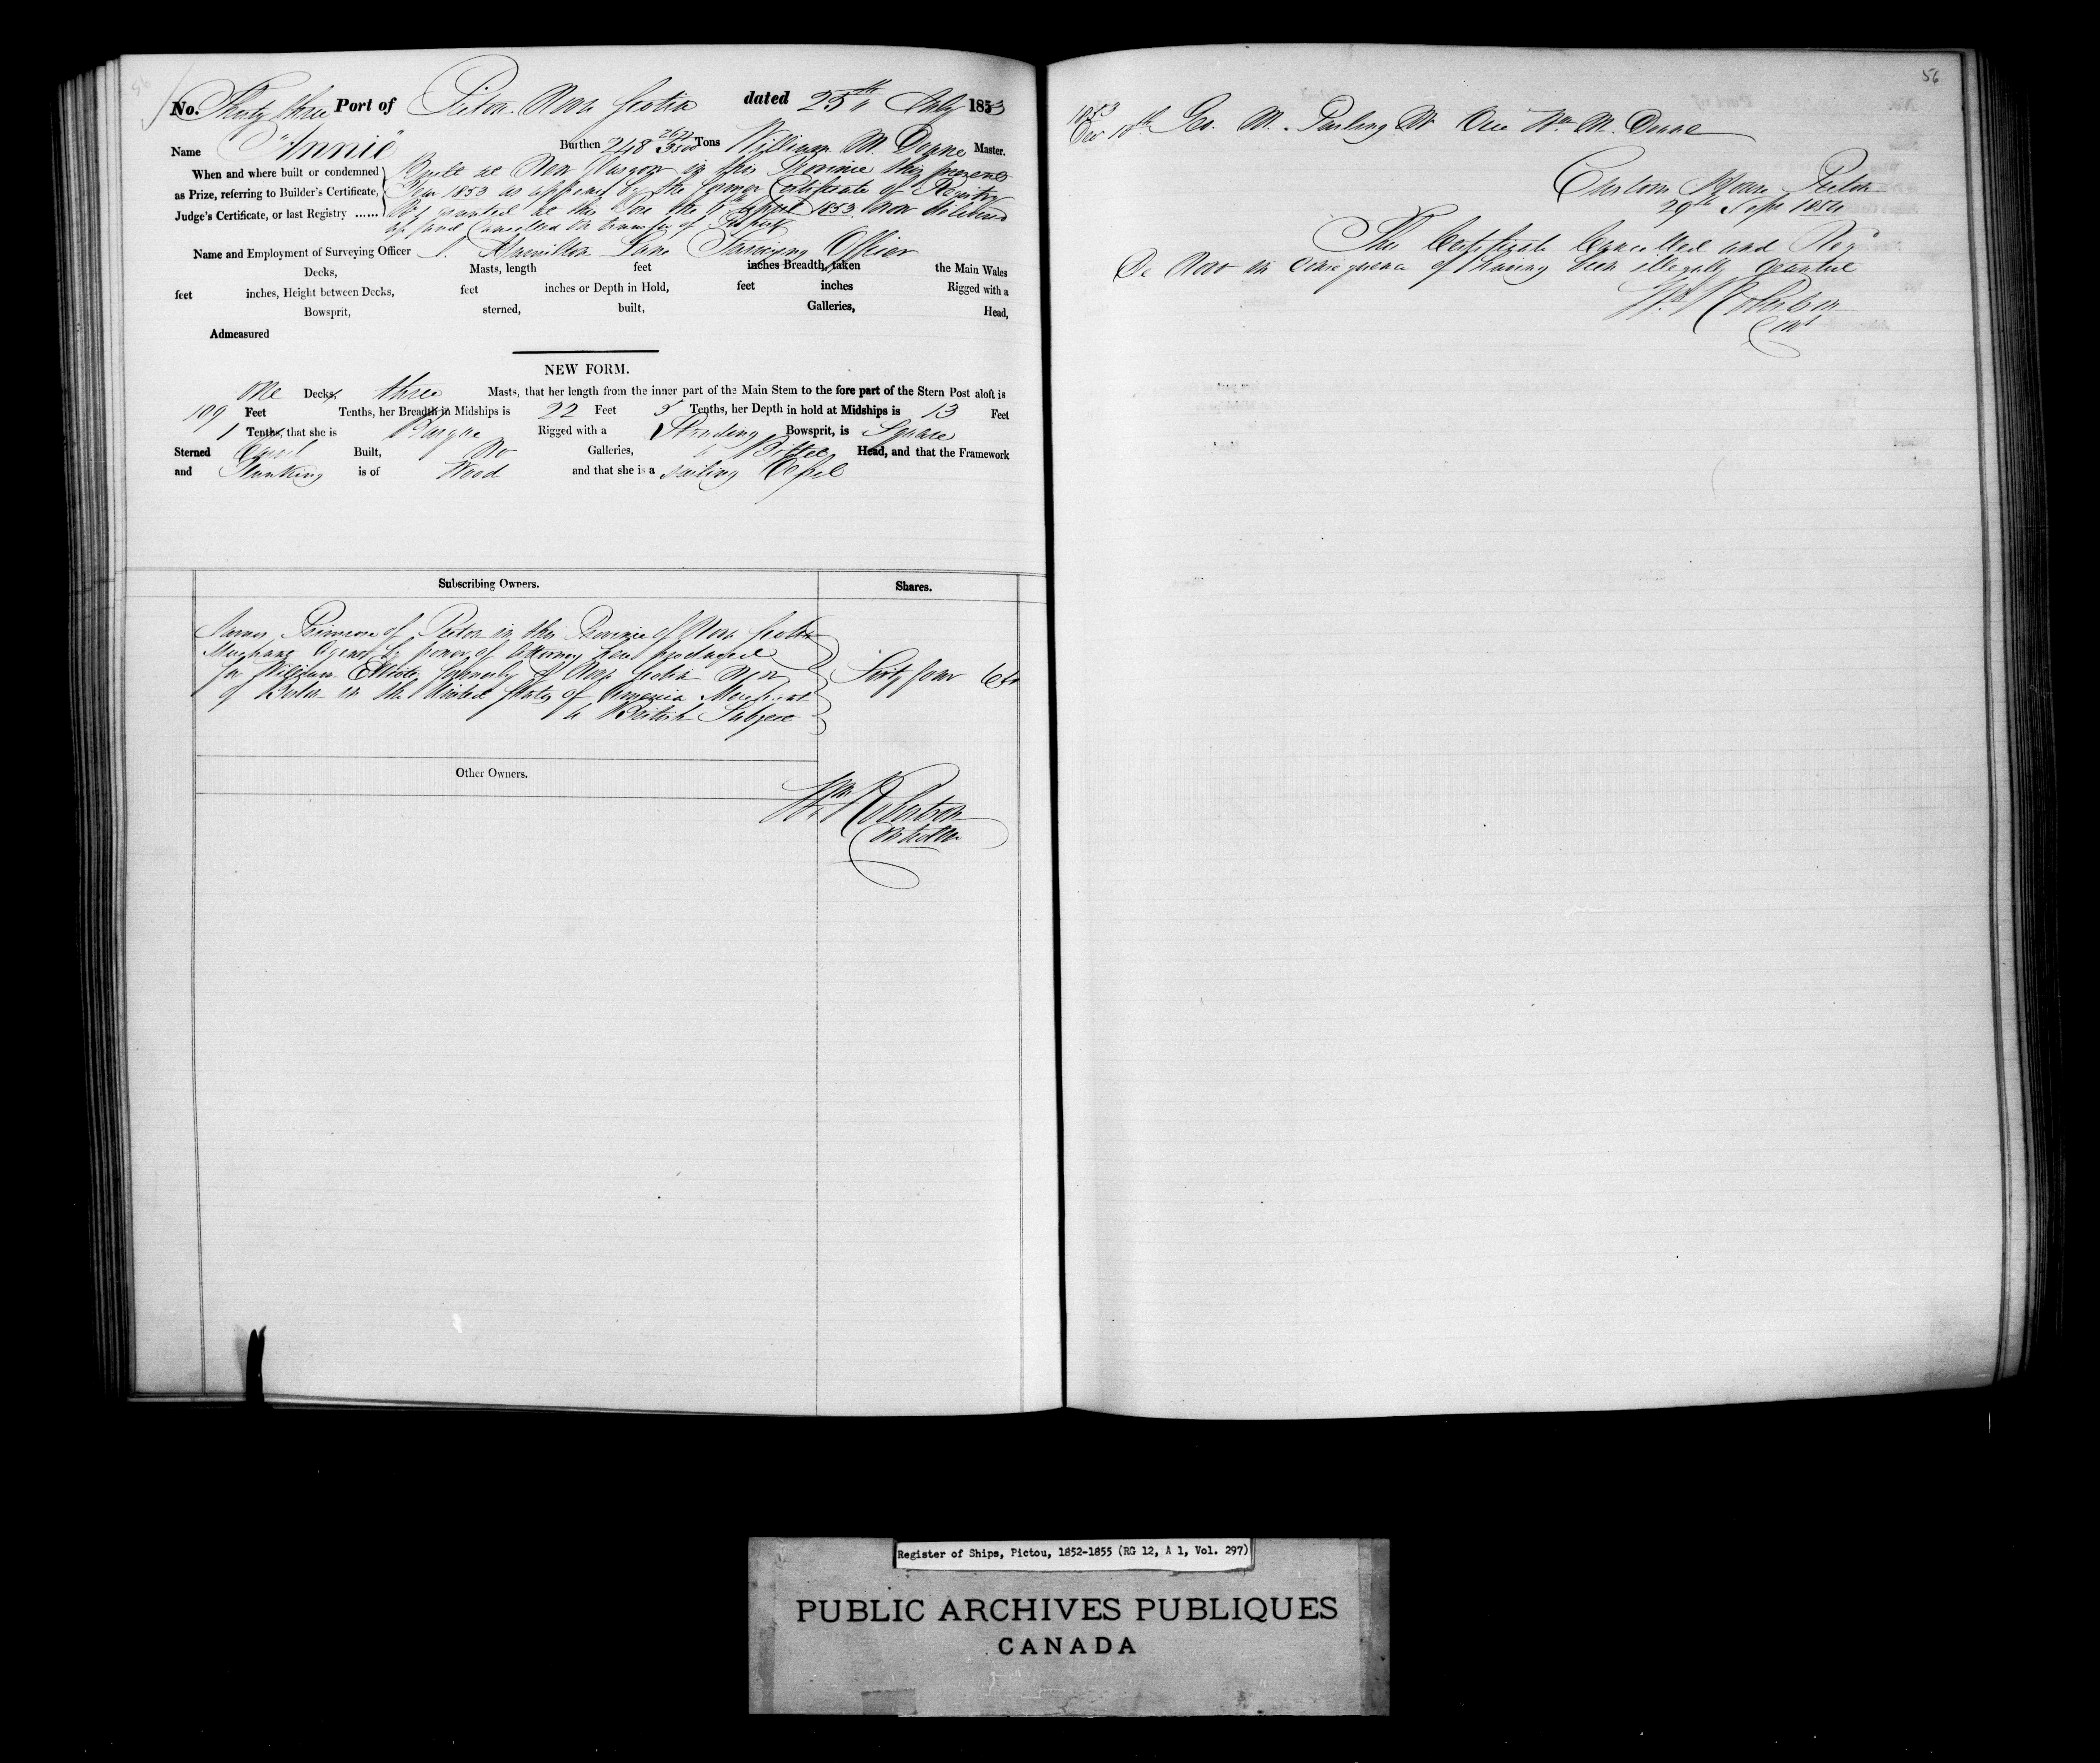 56
No. Thirty three Port of Pictou Nova Scotia dated 25th July 1853
Name "Annie" Burthen 248 2677/3500 Tons William M. Doane Master.
When and where built or condemned
as Prize, referring to Builder's Certificate,
Judge's Certificate, or last Registry ......
Built at New Glasgow in this Province this present
Year 1853 as appears by the former Certificate of Registry
granted at this Port the April 1853 now delivered
up and Cancelled on transfer of Property
Name and Employment of Surveying Officer J. Hamilton Lane Surveying Officer
Decks, Masts, length feet inches Breadth, taken the Main Wales
feet inches, Height between Decks, feet inches or Depth in Hold, feet inches Rigged with a
Bowsprit, sterned, built, Galleries, Head,
Admeasured
NEW FORM.
One Decks, three Masts, that her length from the inner part of the Main Stem to the fore part of the Stern Post aloft is
109 Feet 1 Tenths, her Breadth in Midships is 22 Feet 5 Tenths, her Depth in hold at Midships is 13 Feet
Tenths, that she is Barque Rigged with a Standing Bowsprit, is Square
Sterned Carvel Built, No Galleries, a Billet Head, and that the Framework
and Planking is of Wood and that she is a sailing Vessel
Subscribing Owners. Shares.
James Primrose of Pictou in this Province of Nova Scotia
Merchant Agent by power of Attorney here produced
for William formerly of Nova Scotia Now
of Boston in the United States of America Merchant
a British Subject
Sixty four 64
Other Owners.
Wm Robertson
Controller
56
1853
Dec 10th Geo. M. Vice Wm M. Doane
Custom House Pictou
29th Sept 1854
This Certificate Cancelled and Reg'd
De Novo in consequence of having been illegally granted
Wm Robertson
Cont
Register of Ships, Pictou, 1852-1855 (RG 12, A 1, Vol. 297)
PUBLIC ARCHIVES PUBLIQUES
CANADA